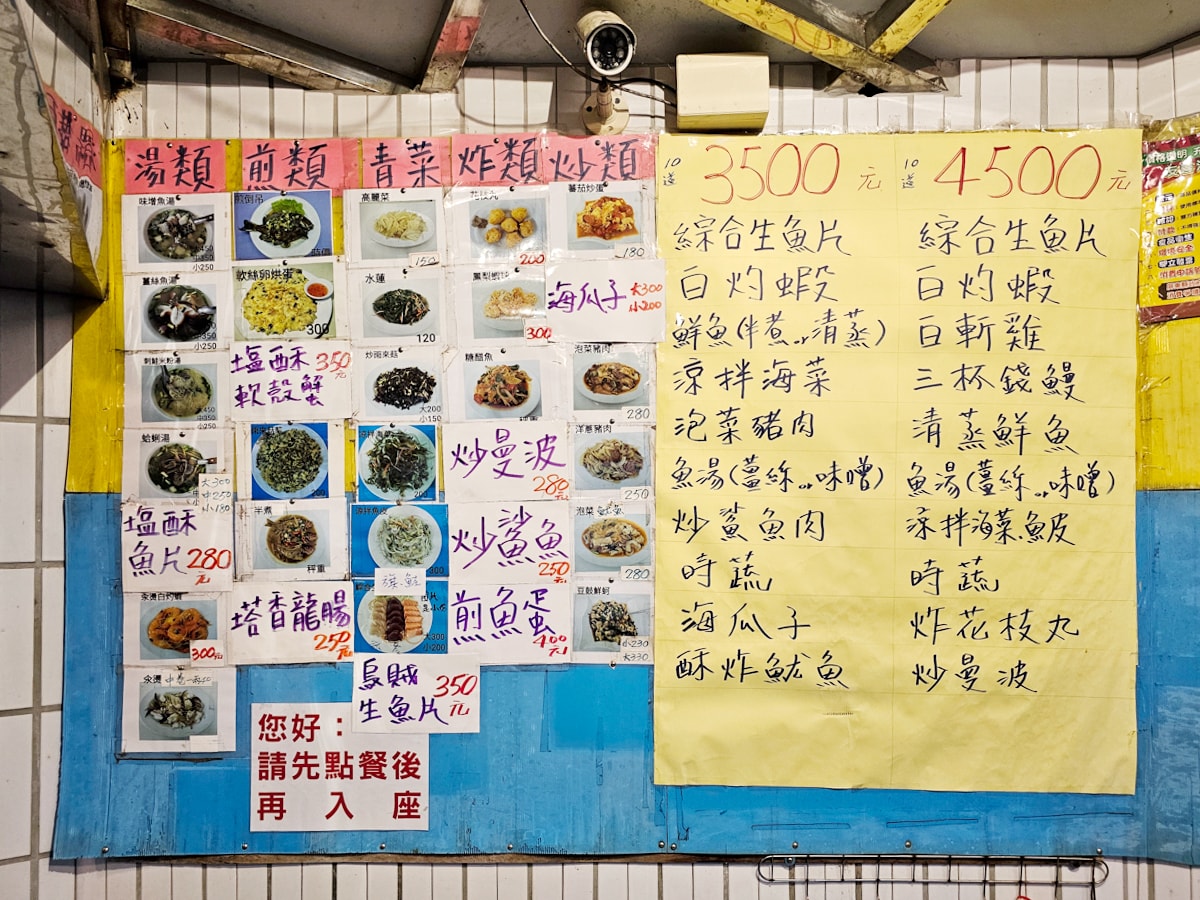 湯類
味增魚湯
中350
小250
薑絲魚湯
小250
味噌
蛤蜊湯
大300
中250
小180
塩酥
魚片280
元
汆燙白灼蝦
300元
汆燙
煎類
煎倒吊
軟絲卵烘蛋
300
塩酥350
元
軟殼蟹
半煮
秤重
塔香龍腸
250元
青菜
高麗菜
150
水蓮
120
大200
小150
200
涼拌魚皮
300
綜合
大300
小200
烏賊 350
生魚片 元
炸類
花枝丸
200
鳳梨蝦球
300
糖醋魚
秤重
炒曼波
280元
炒鯊魚
250元
煎魚蛋
400元
炒類
蕃茄炒蛋
180
海瓜子 大300
小200
泡菜豬肉
280
洋蔥豬肉
250
泡菜魷魚
280
豆鼓鮮蚵
小230
大330
您好：
請先點餐後
再入座
10
送
3500元
綜合生魚片
白灼蝦
鮮魚(半煮or清蒸)
涼拌海菜
泡菜豬肉
魚湯(薑絲or味噌)
炒鯊魚肉
時蔬
海瓜子
酥炸魷魚
10
送
4500元
綜合生魚片
白灼蝦
白斬雞
三杯錢鰻
清蒸鮮魚
魚湯(薑絲or味噌)
涼拌海菜魚皮
時蔬
炸花枝丸
炒曼波